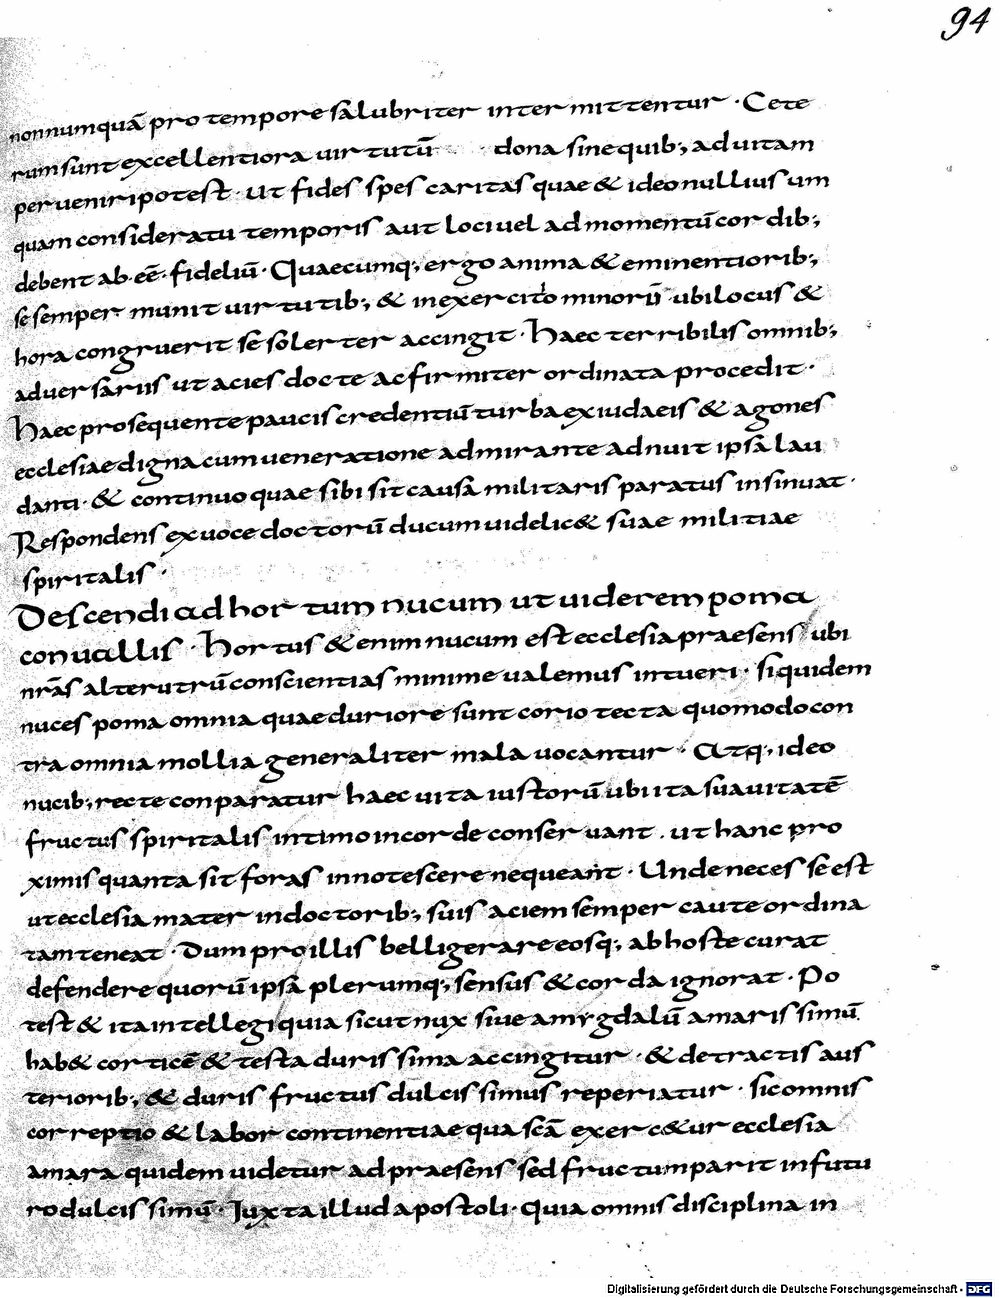 94
nonnumquā pro tempore salubriter intermittentur · Cete
rum sunt excellentiora uirtutū dona sine quib; ad uitam
perueniri potest · Ut fides spes caritas quae & ideo nullius um
quam consideratu temporis aut loci uel ad momentū cordib;
debent ab eē · fideliū · Quaecumq; ergo anima & eminentiorib;
se semper munit uirtutib; & in exercito minorū ubi locus &
hora congruerit se solerter accingit · Haec terribilis omnib;
aduersariis ut acies docte ac firmiter ordinata procedit ·
Haec prosequente paucis credentiū turba ex iudaeis & agones
ecclesiae digna cum ueneratione admirante adnuit ipsa lau
danti · & continuo quae sibi sit causa militaris paratus insinuat ·
Respondens ex uoce doctorū ducum uidelic& suae militiae
spiritalis ·
Descendi ad hortum nucum ut uiderem poma
conuallis · Hortus & enim nucum est ecclesia praesens ubi
nrās alterutrū conscientias minime ualemus intueri · siquidem
nuces poma omnia quae duriore sunt corio tecta quomodo con
tra omnia mollia generaliter mala uocantur · Atq; ideo
nucib; recte conparatur haec uita iustorū ubi ita suauitatē
fructus spiritalis intimo in corde conseruant . ut hanc pro
ximis quanta sit foras innotescere nequeant · Unde neces se est
ut ecclesia mater in doctorib; suis aciem semper caute ordina
tam teneat · Dum pro illis belligerare eosq; ab hoste curat
defendere quorū ipsa plerumq; sensus & corda ignorat · Po
test & ita intellegi quia sicut nux siue amygdalū amarissimū
hab& corticē & testa durissima accingitur · & detractis aus
teriorib; & duris fructus dulcissimus reperiatur · sic omnis
correptio & labor continentiae qua scā exerc&ur ecclesia
amara quidem uidetur ad praesens sed fructum parit in futu
ro dulcissimū · Juxta illud apostoli · Quia omnis disciplina in
Digitalisierung gefördert durch die Deutsche Forschungsgemeinschaft - DFG